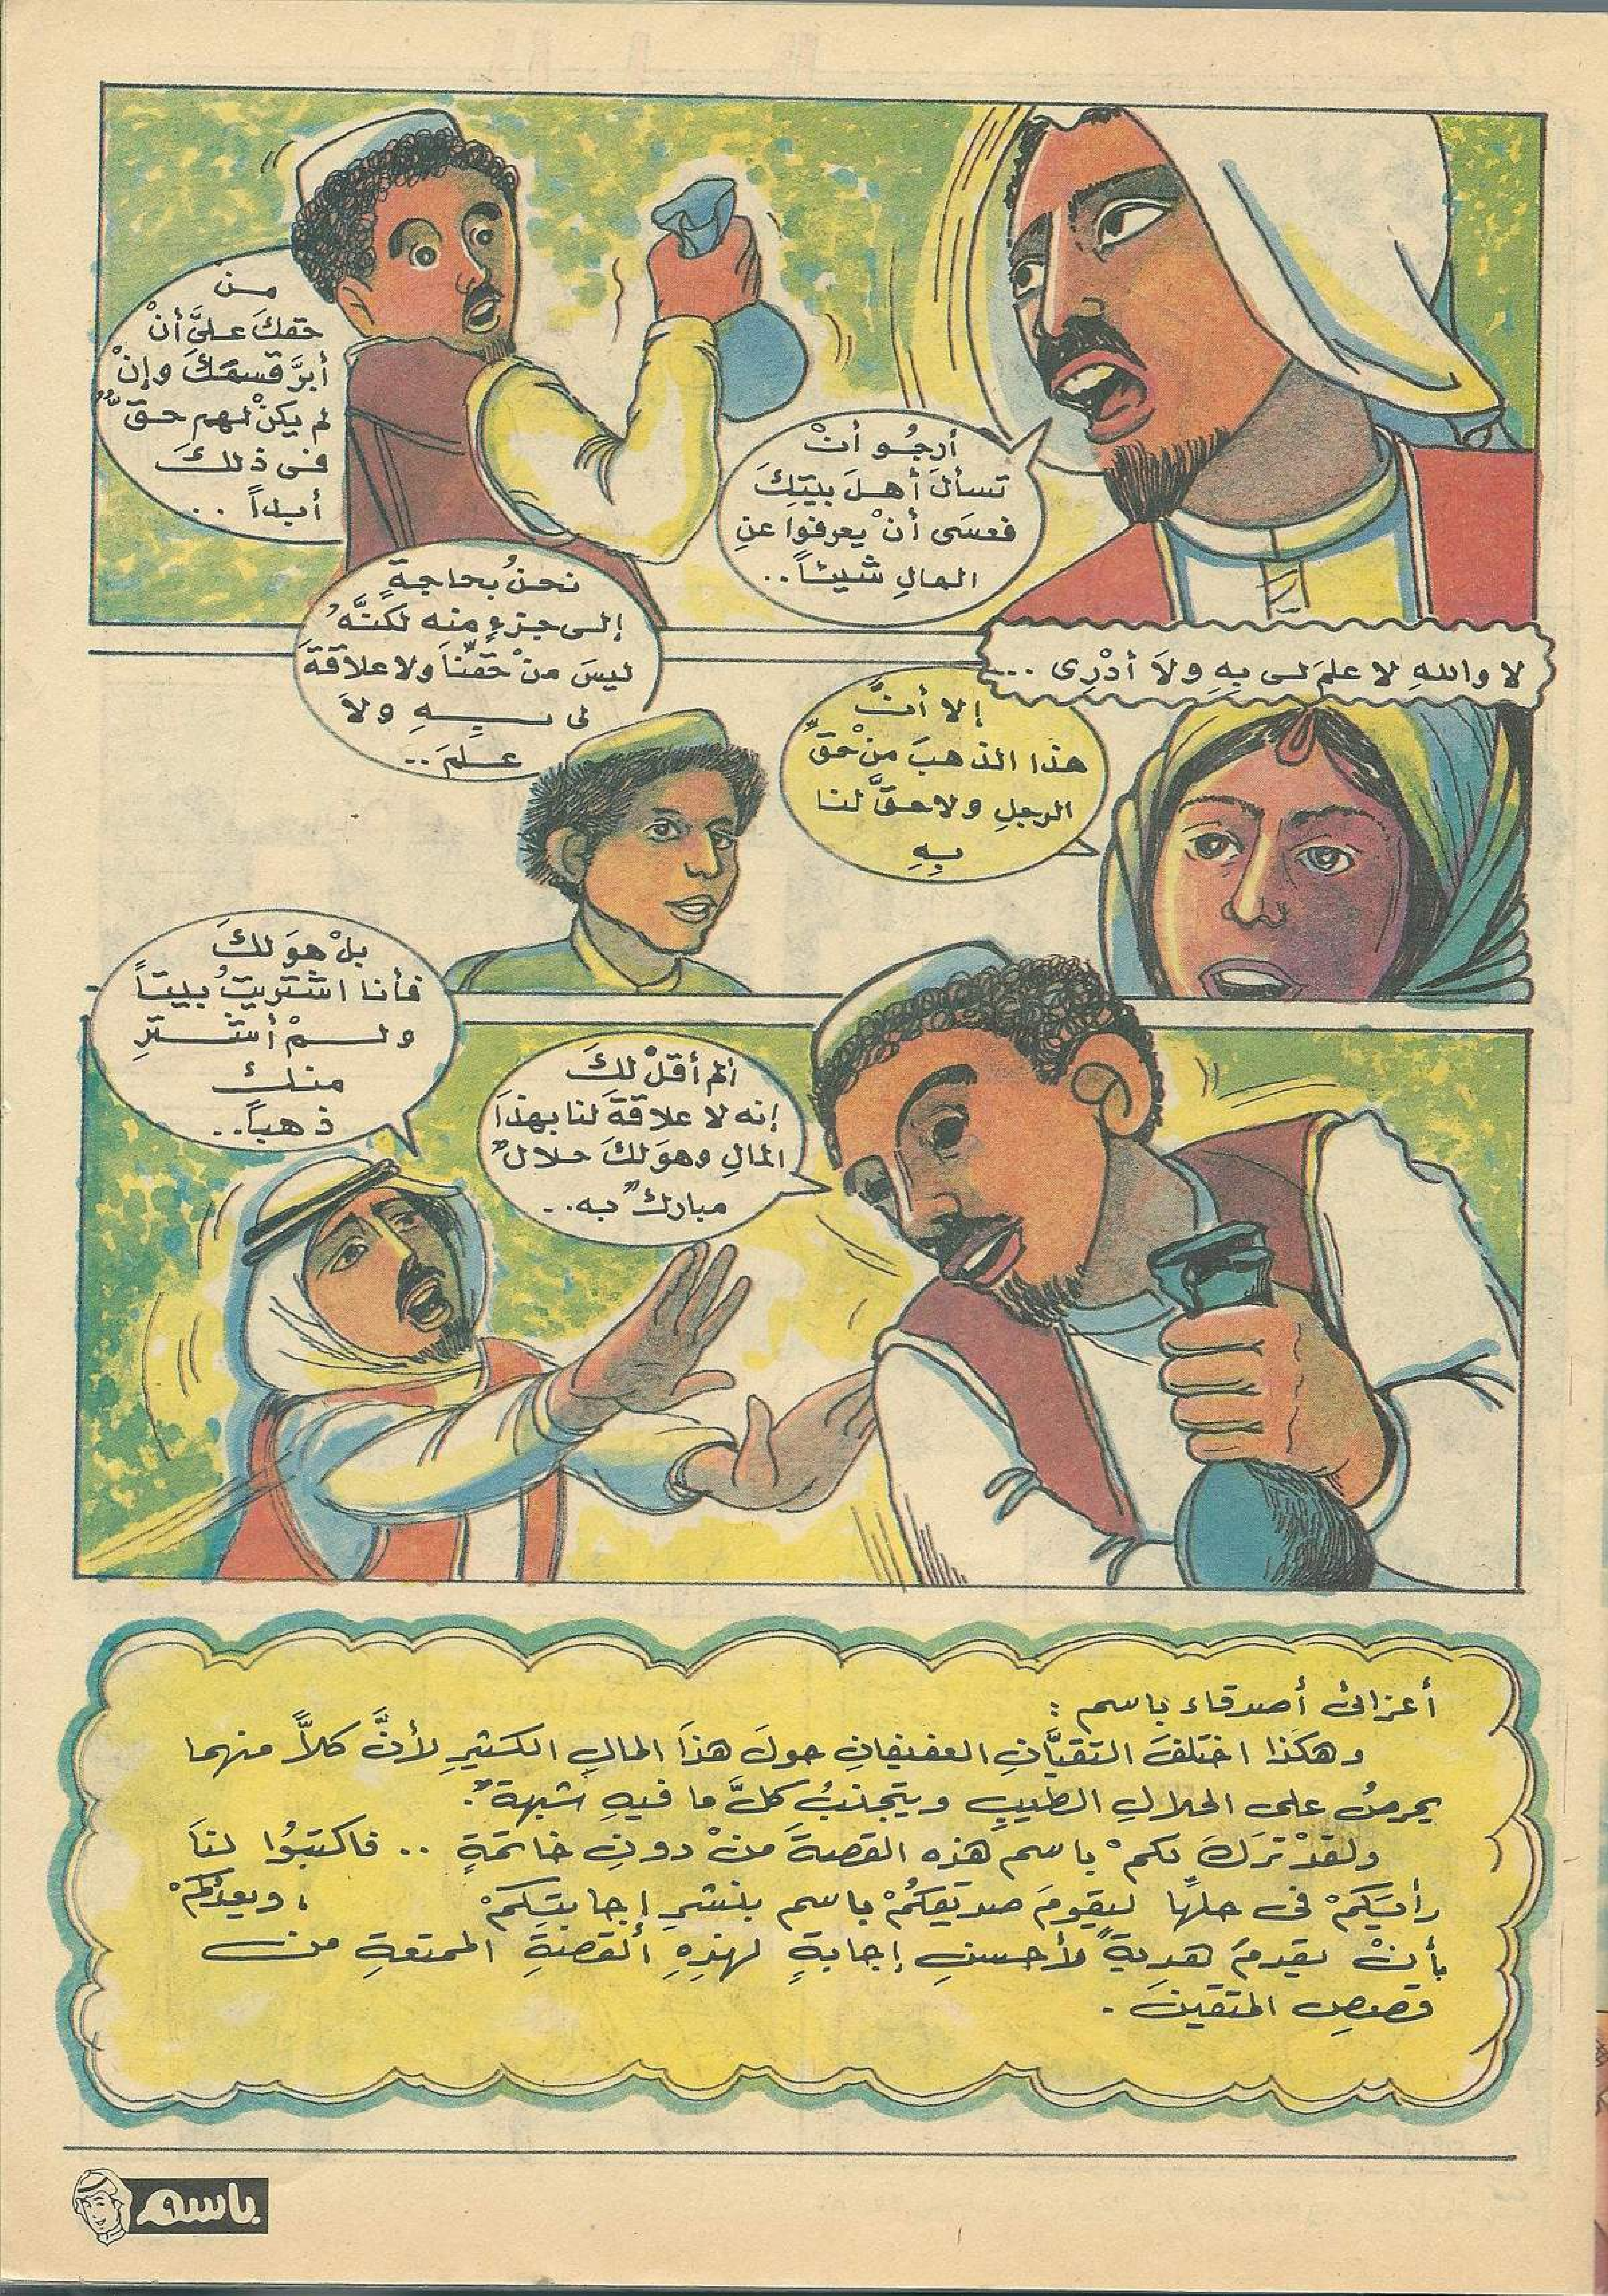 أرجُو أنْ
تسألَ أهلَ بيتِكَ
فعسَى أنْ يعرفوا عنِ
المالِ شيئاً..
من
حقكَ علىَّ أنْ
أبرَّ قسمَكَ وإنْ
لم يكنْ لهم حقٌّ
فى ذلكَ
أبداً ..
لا واللهِ لا علمَ لى بِهِ ولاَ أدْرِى ...
إلا أنَّ
هذا الذهبَ منْ حقِّ
الرجلِ ولا حقَّ لنا
بِهِ
نحنُ بحاجةٍ
إلى جزءٍ منه لكنَّهُ
ليسَ منْ حقِّنَا ولا علاقةَ
لى بِهِ ولاَ
علمَ..
ألم أقلْ لكَ
إنه لا علاقةَ لنا بهذَا
المالِ وهوَ لكَ حلالٌ
مباركٌ به..
بلْ هوَ لكَ
فأنا اشتريتُ بيتاً
ولمْ أشترِ
منك
ذهباً..
أعزائى أصدقاء باسم :
وهكذا اختلفَ التقيَّانِ العفيفانِ حولَ هذَا المالِ الكثيرِ لأنَّ كلاًّ منهما
يحرصُ على الحلالِ الطيبِ ويتجنبُ كلَّ ما فيهِ شبهةٌ.
ولقدْ تركَ لكمْ باسم هذه القصةَ منْ دونِ خاتمةٍ .. فاكتبُوا لنَا
رأيَكمْ فى حلِّها ليقومَ صديقكُمْ باسم بنشرِ إجابتِكمْ ، ويعدُكمْ
بأنْ يقدمَ هديةً لأحسنِ إجابةٍ لهذِهِ القصةِ الممتعةِ من
قصصِ المتقينَ .
باسم